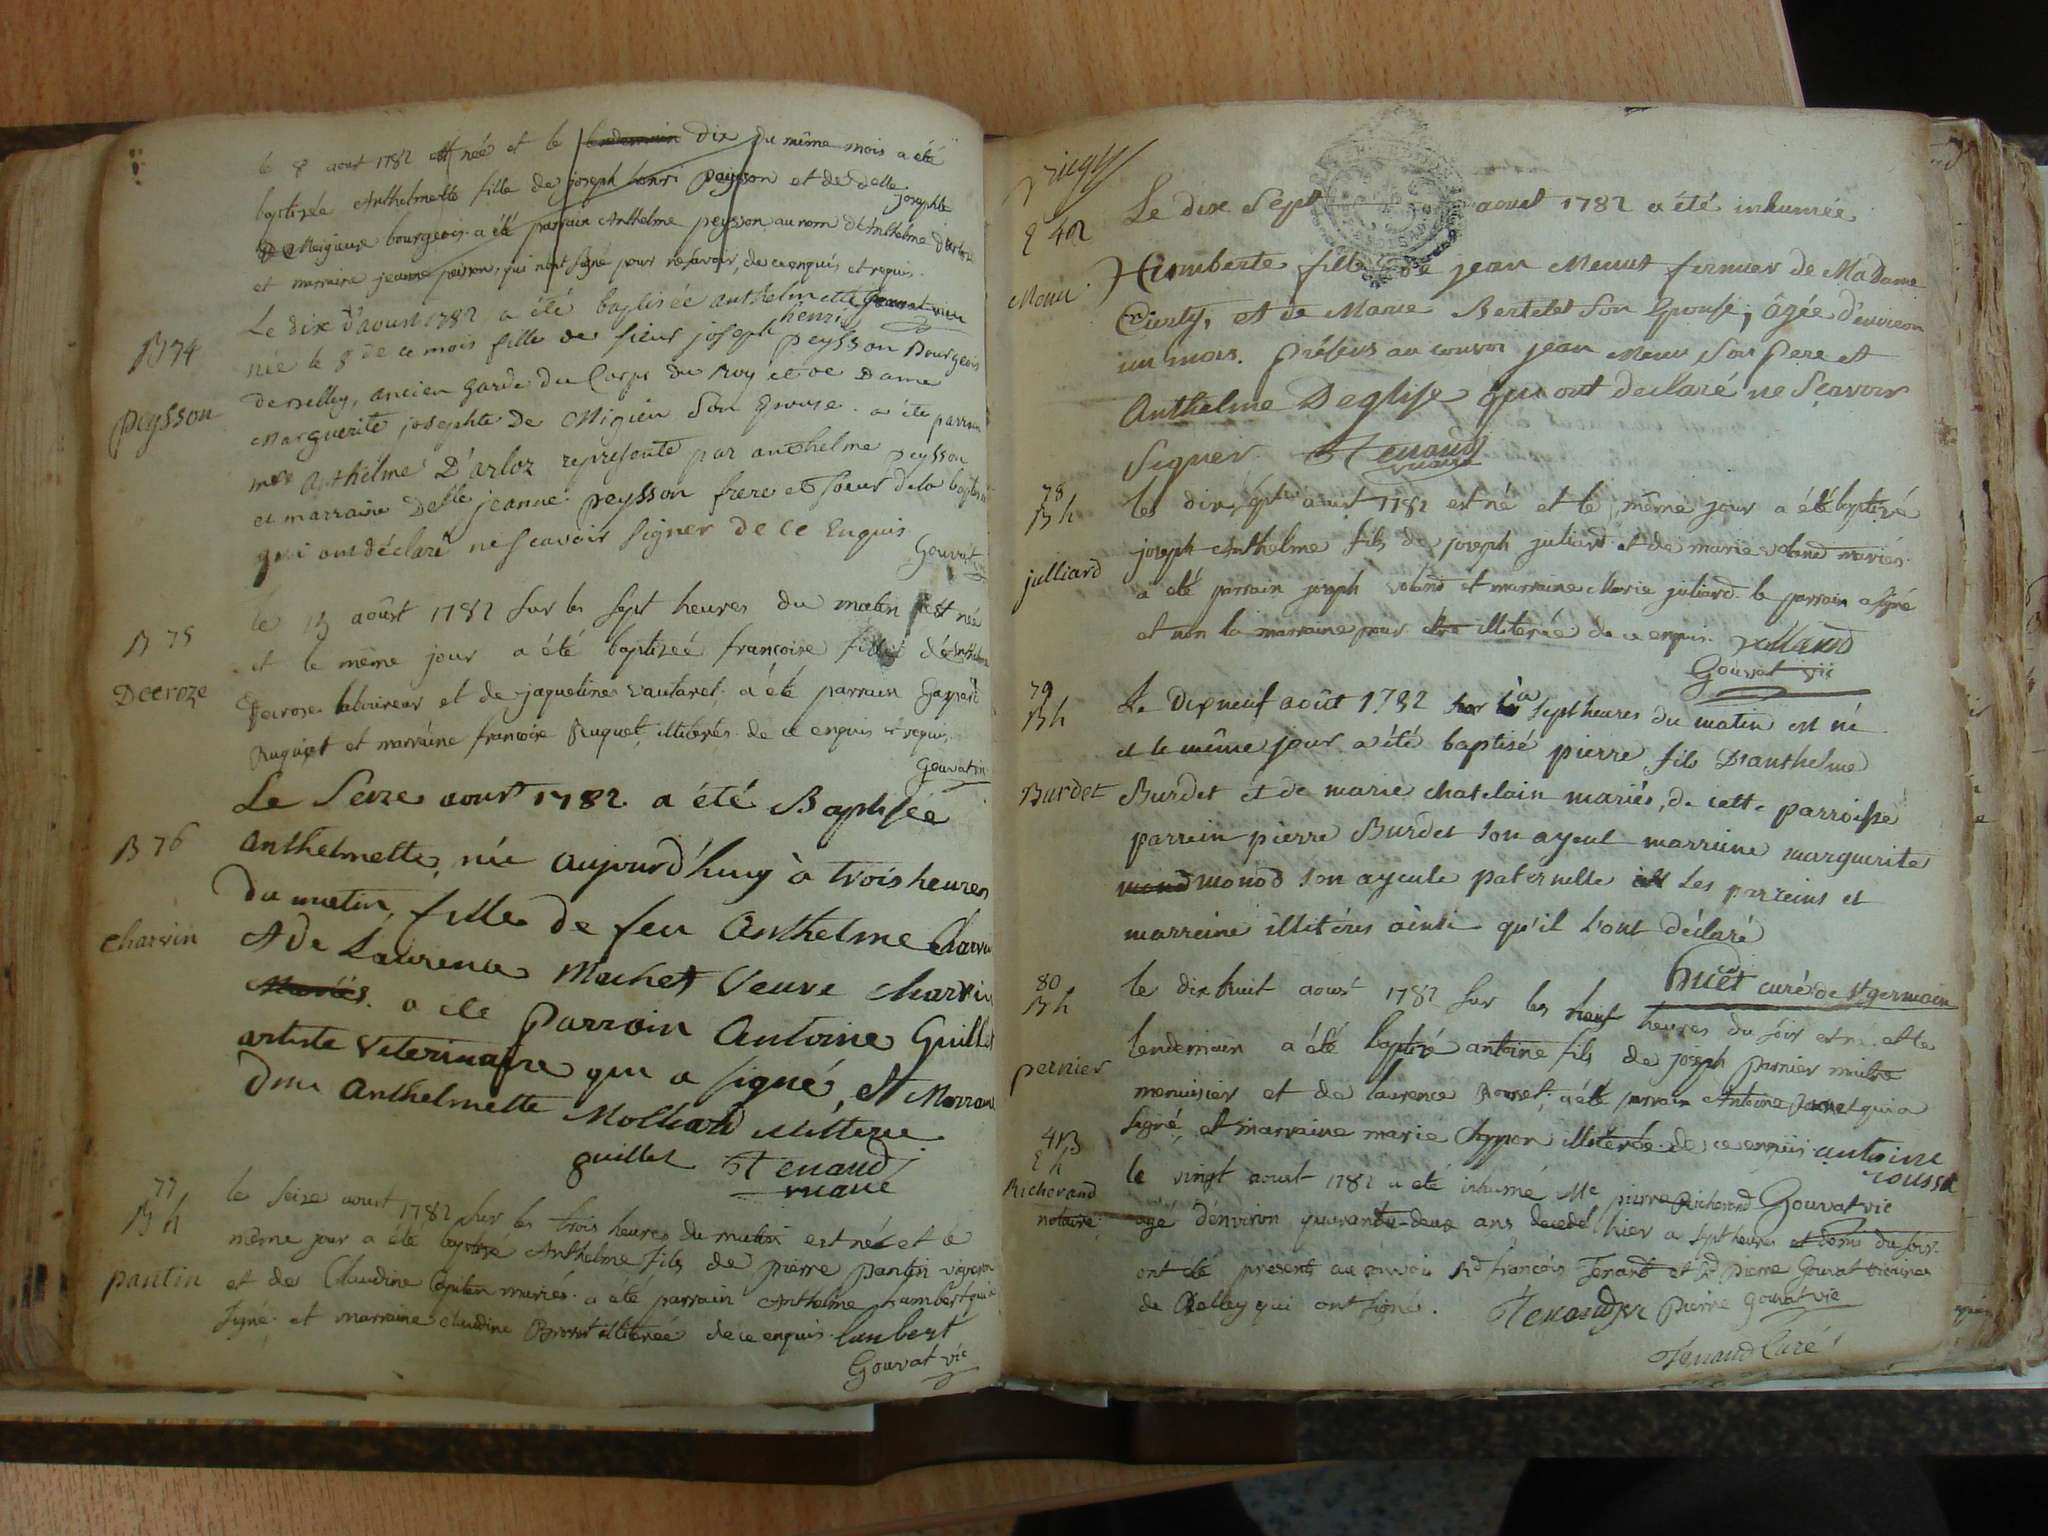 le 8 aout 1782 est née et le lendemain dix du même mois a été
baptisée Anthelmette fille de joseph henri peysson et de delle josephte
de Meigieux bourgeois a été parrain Anthelme peysson au nom d'Anthelme
et marraine jeanne peisson, qui n'ont signé pour ne savoir, de ce enquis et requis.
B 74
peysson
Le dix d'aoust 1782 a été baptisée anthelmette
née le 8 de ce mois fille de sieur joseph henri peysson Bourgeois
de Belley, ancien garde du Corps du Roy et de Dame
Marguerite josephte De Migieu Son Epouse. a été parrain
mre Anthelme D'arloz representé par anthelme peysson
et marraine Delle jeanne peysson frere et soeur de la baptisée
qui ont déclaré ne scavoir signer de ce Enquis
Gouvat
B 75
Decroze
le 13 août 1782 sur les sept heures du matin est née
et le même jour a été baptizée françoise fille d'Anthelme
Decrose laboureur et de jaqueline vautaret. a été parrain Gaspard
Ruguet et marraine françoise Ruguet illiterés de ce enquis et requis.
Gouvat vic
B 76
charvin
Le Seize aoust 1782 a été Baptisée
anthelmette, née aujourd'huy à trois heures
du matin, fille de feu Anthelme Charvin
et de Laurence Machet Veuve charvin
Mariés. a été Parrain Antoine Guillet
artiste veterinaire qui a signé, et Marraine
dme Anthelmette Molliard illitterée
guillet Tenand
vicaire
77
B h
pantin
le seize aoust 1782 sur les trois heures du matin est né et le
même jour a été baptisé Anthelme fils de pierre pantin vigneron
et de Claudine Copiten mariés. a été parrain Anthelme humbert qui a
signé et marraine claudine Brosset illiterée de ce enquis. humbert
Gouvat vic
E 42
Menu
Le dix Sept aoust 1782 a été inhumée
Humberte fille de jean Menut fermier de MaDame
Cuerty, et de Marie Bertelet Son Epouse, âgée d'environ
un mois. présens au convoi jean Menu Son pere et
Anthelme Deglise qui ont declaré ne Scavoir
Signer. Tenand
vicaire
78
B h
julliard
le dix sept aout 1782 est né et le même jour a été baptizé
joseph Anthelme fils de joseph juliard et de marie voland mariés.
a été parrain joseph voland et marraine Marie juliard. le parrain a signé
et non la marraine pour être illiterée de ce enquis. volland
Gouvat vic
79
B h
Burdet
Le Dix neuf août 1782 sur les sept heures du matin est né
et le même jour a été baptisé pierre fils D'anthelme
Burdet et de marie chatelain mariés, de cette parroisse
parrein pierre Burdet son ayeul marreine marguerite
monod monod son ayeule paternelle Les parreins et
marreine illitérés ainsi qu'il l'ont déclaré
huet curé de st germain
80
B h
pernier
le dix huit aoust 1782 sur les neuf heures du soir est né et le
lendemain a été baptizé antoine fils de joseph parnier maitre
menuisier et de laurence Rousset; a été parrain Antoine qui a
signé et marraine marie illiterée de ce enquis antoine
rousset
43
E h
Richerand
notaire
le vingt aoust 1782 a été inhumé Me pierre Richerand Gouvat vic
agé d'environ quarante-deux ans decedé hier a sept heures et demi du soir.
ont été présents au convoi Rd françois Tenand et Rd pierre Gouvat vicaires
de Belley qui ont signé. Tenand vic pierre gouvat vic
Tenand Curé